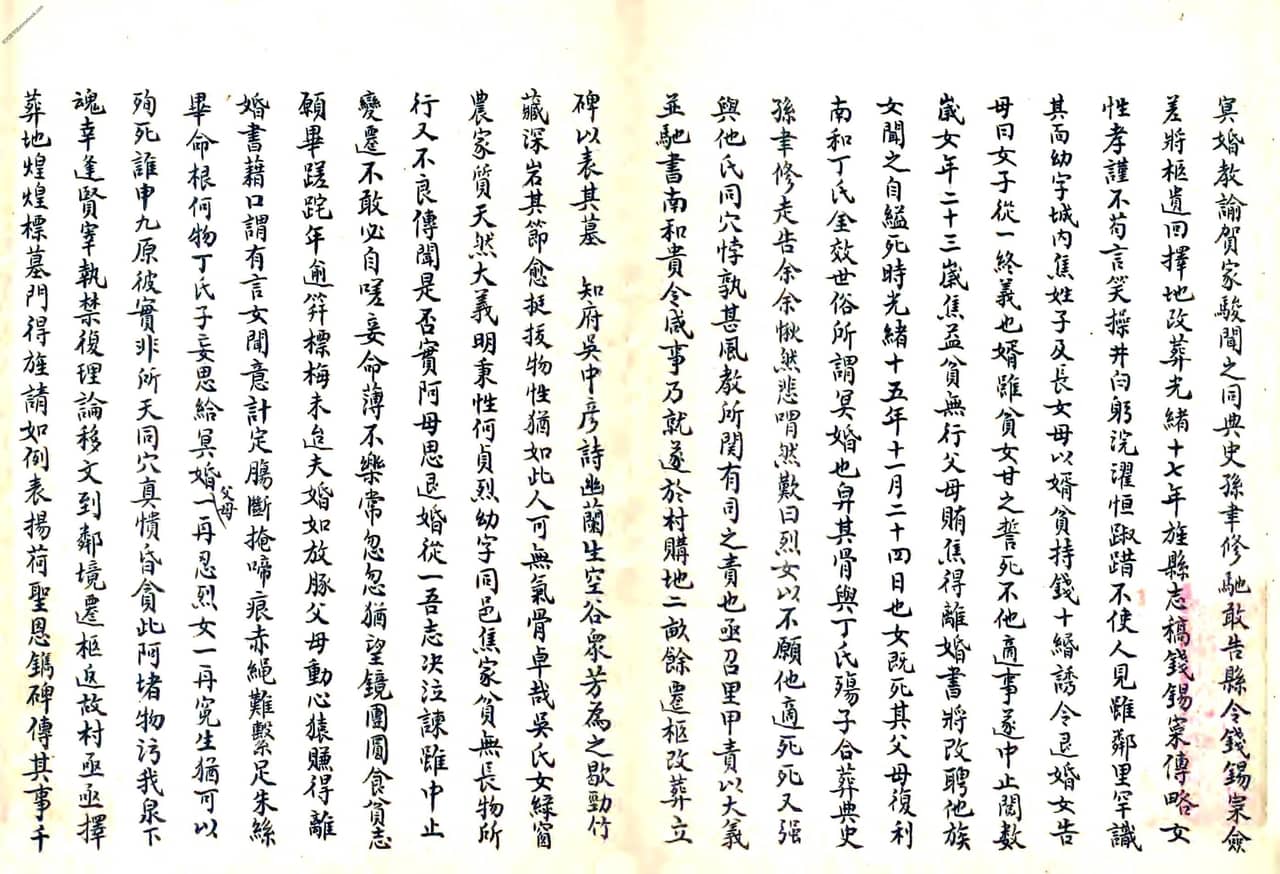 冥婚教諭賀家駿聞之同典史孫聿修馳敢告縣令錢錫寀僉
差將柩遺回擇地改葬光緒十七年旌縣志稿錢錫寀傳略女
性孝謹不苟言笑操井臼躬浣濯恒踧踖不使人見雖鄰里罕識
其面幼字城內焦姓子及長女母以婿貧持錢十緡誘令退婚女告
母曰女子從一終義也婿雖貧女甘之誓死不他適事遂中止閱數
歲女年二十三歲焦益貧無行父母賄焦得離婚書將改聘他族
女聞之自縊死時光緒十五年十一月二十四日也女既死其父母復利
南和丁氏金效世俗所謂冥婚也舁其骨與丁氏殤子合葬典史
孫聿修走告余余愀然悲喟然歎曰烈女以不願他適死死又强
與他氏同穴悖孰甚風教所関有司之責也亟召里甲責以大義
並馳書南和貴令咸事乃就遂於村購地二畝餘遷柩改葬立
碑以表其墓 知府吳中彥詩幽蘭生空谷衆芳為之歇勁竹
藏深岩其節愈挺拔物性猶如此人可無氣骨卓哉吳氏女緑窗
農家質天然大義明秉性何貞烈幼字同邑焦家貧無長物所
行又不良傳聞是否實阿母思退婚從一吾志决泣諫雖中止
變遷不敢必自嗟妾命薄不樂常忽忽猶望鏡團圓食貧志
願畢蹉跎年逾笄標梅未迨夫婚如放豚父母動心猿賺得離
婚書藉口謂有言女聞意計定腸斷掩啼痕赤繩難繫足朱絲
畢命根何物丁氏子妄思給冥婚父母一再忍烈女一再寃生猶可以
殉死誰申九原彼實非所天同穴真憒昏貪此阿堵物污我泉下
魂幸逢賢宰執禁復理論移文到鄰境遷柩返故村亟亟擇
葬地煌煌標墓門得旌請如例表揚荷聖恩鐫碑傳其事千